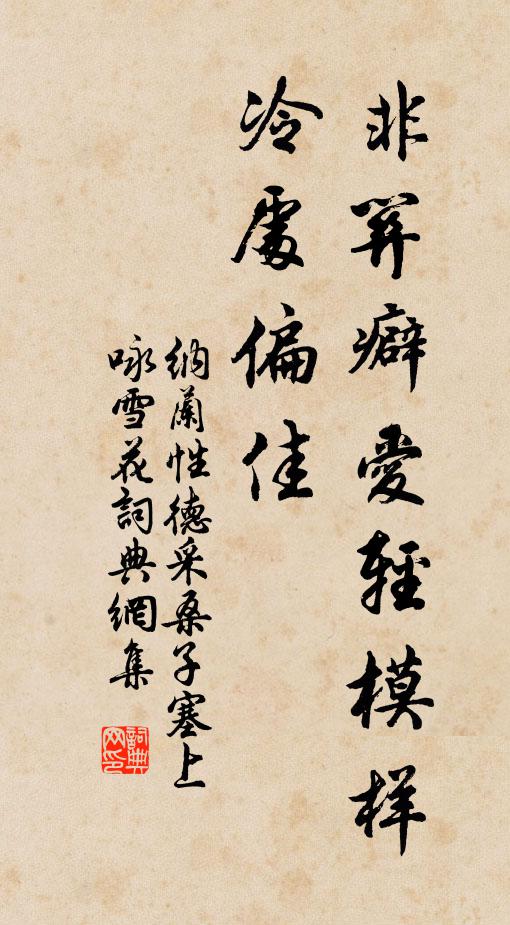 非關癖愛輕模样
冷處偏佳
納蘭性德采桑子塞上
咏雪花詞典網集
詞典
网印